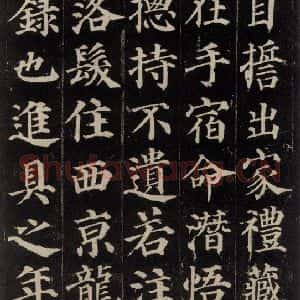 自誓出家禮藏
在手宿命潛悟
揔持不遺若注
落髮住西京龍
錄也進具之年
shufawang.cn